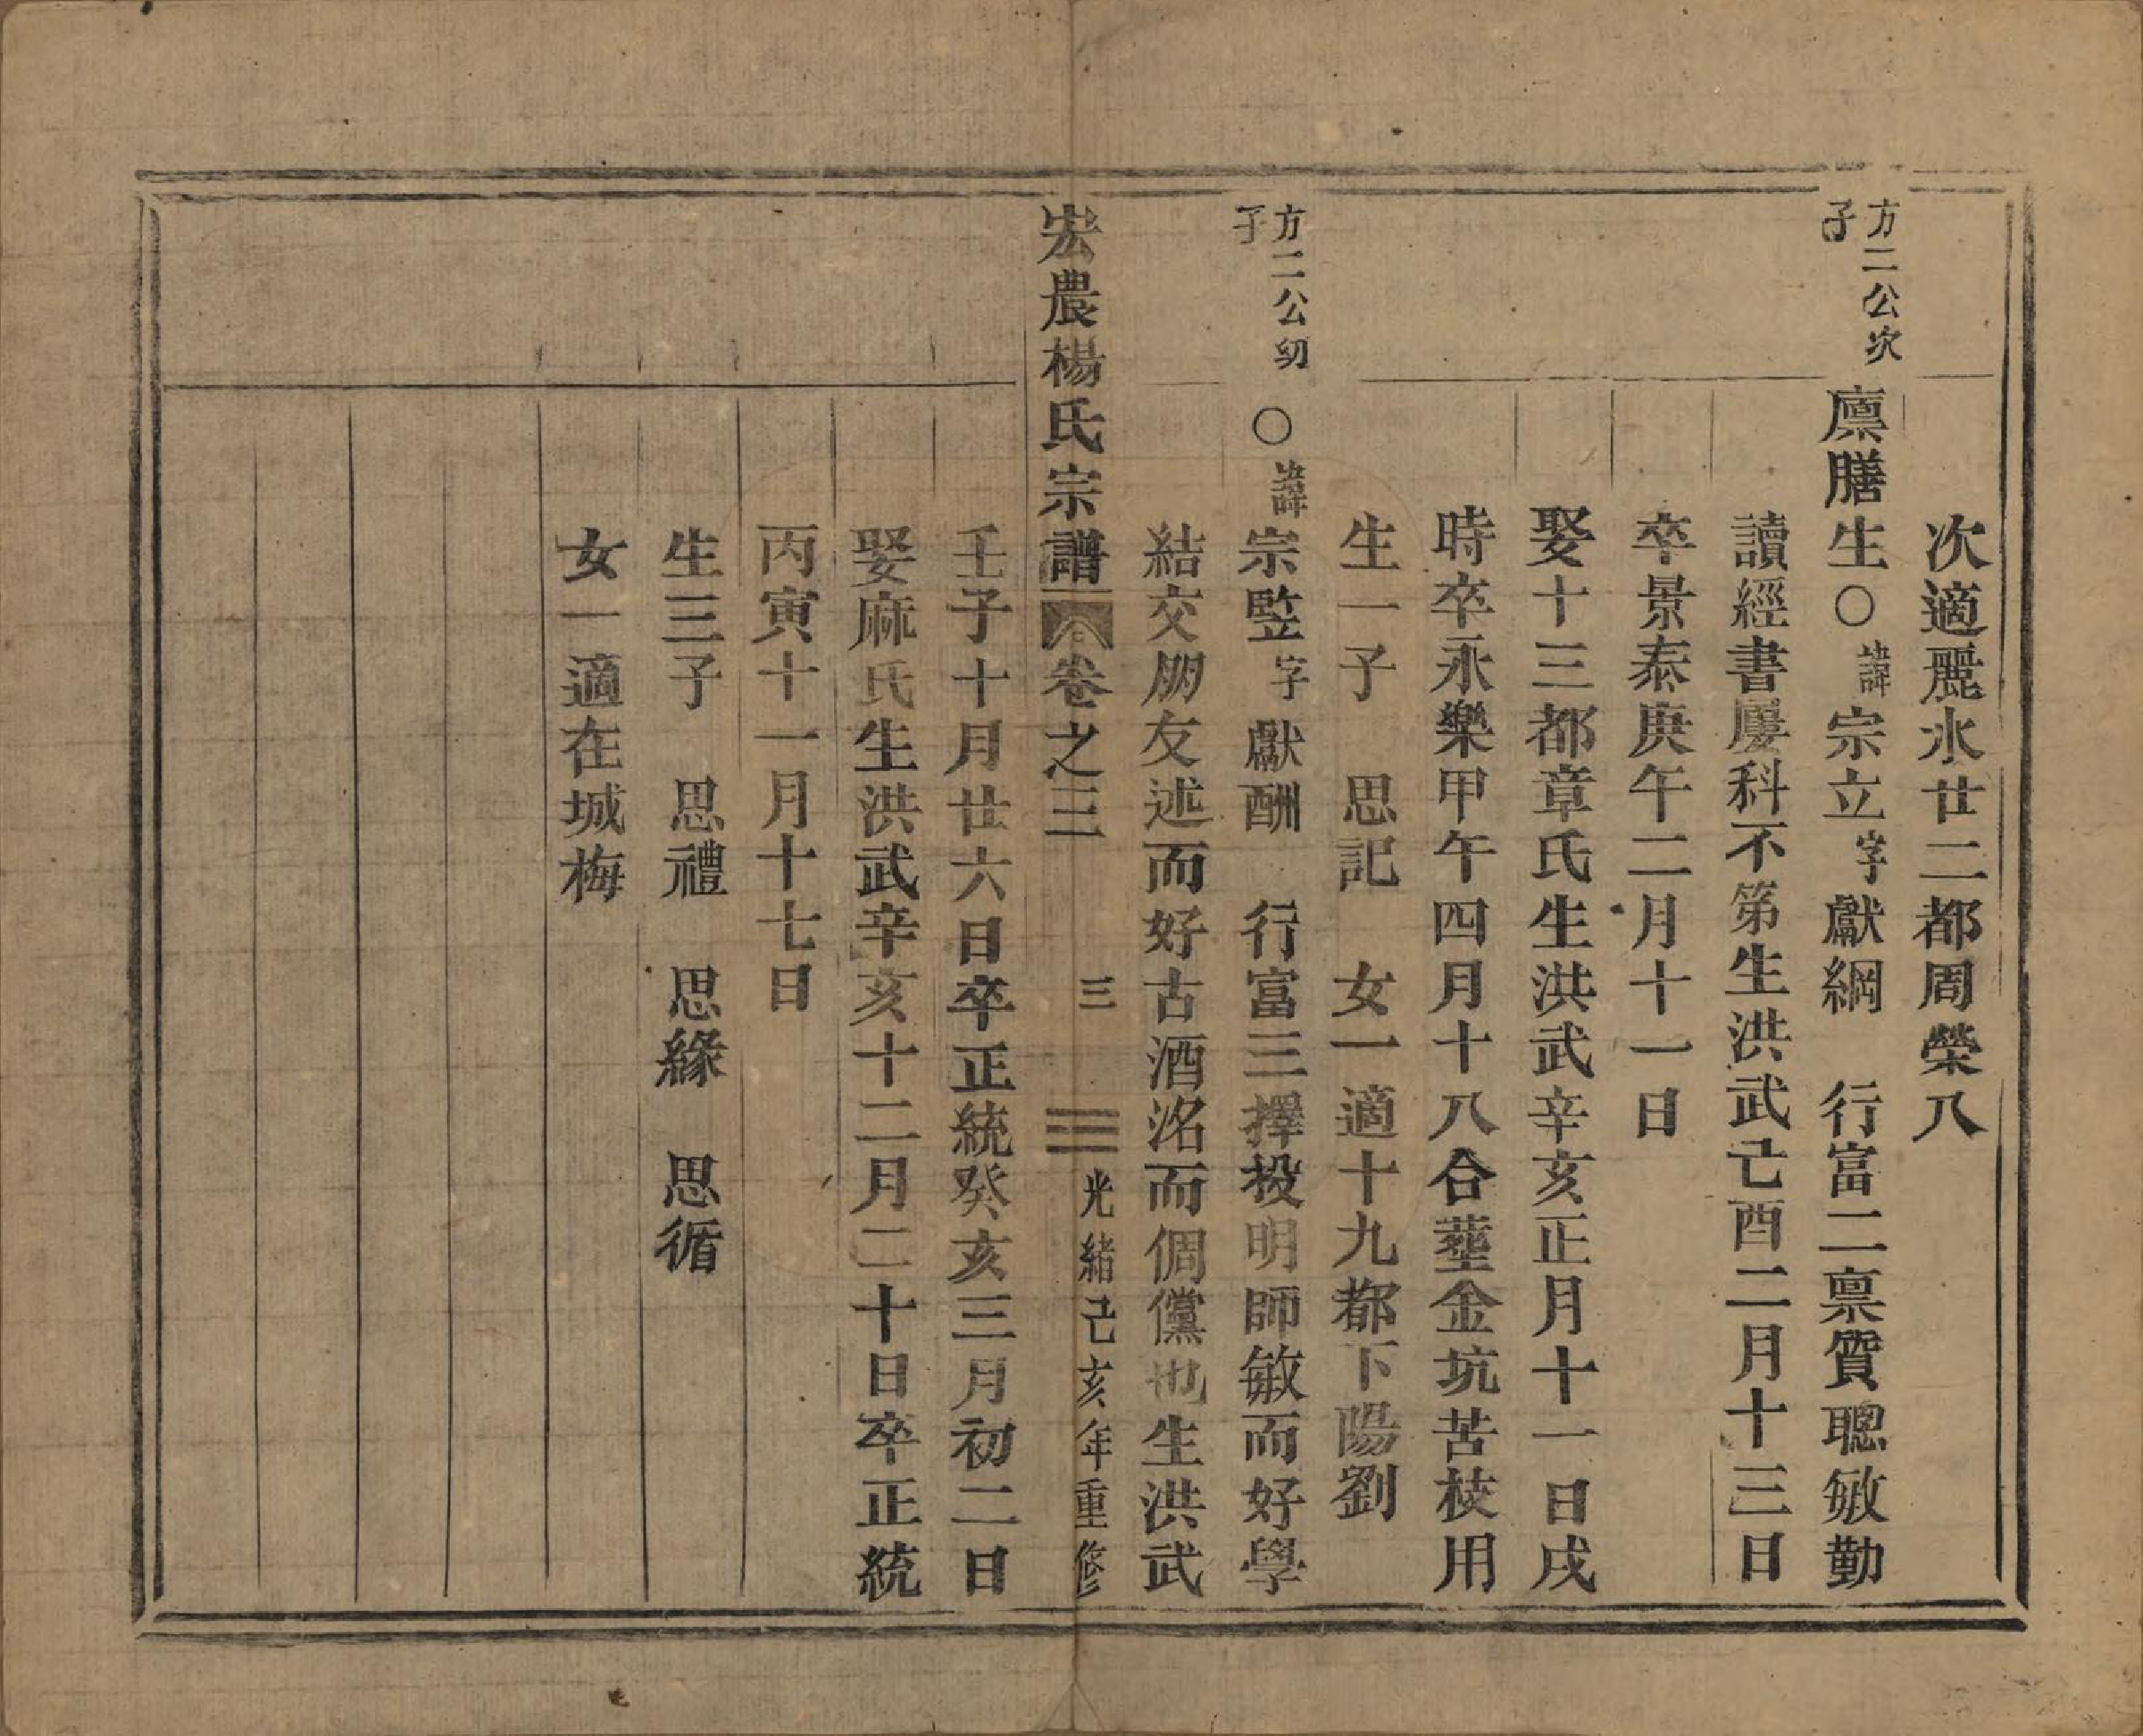 次適麗水廿二都周榮八
方二公次子
廪膳生〇諱宗立字獻綱 行富二禀質聰敏勤
讀經書屢科不第生洪武己酉二月十三日
卒景泰庚午二月十一日
娶十三都章氏生洪武辛亥正月十一日戌
時卒永樂甲午四月十八合塟金坑苦柭用
生一子 思記 女一適十九都下陽劉
方二公幼子
〇諱宗監字獻酬 行富三擇投明師敏而好學
結交朋友述而好古酒洺而倜儻也生洪武
宏農楊氏宗譜 卷之三 三 光緒己亥年重修
壬子十月廿六日卒正統癸亥三月初二日
娶麻氏生洪武辛亥十二月二十日卒正統
丙寅十一月十七日
生三子 思禮 思緣 思循
女一適在城梅